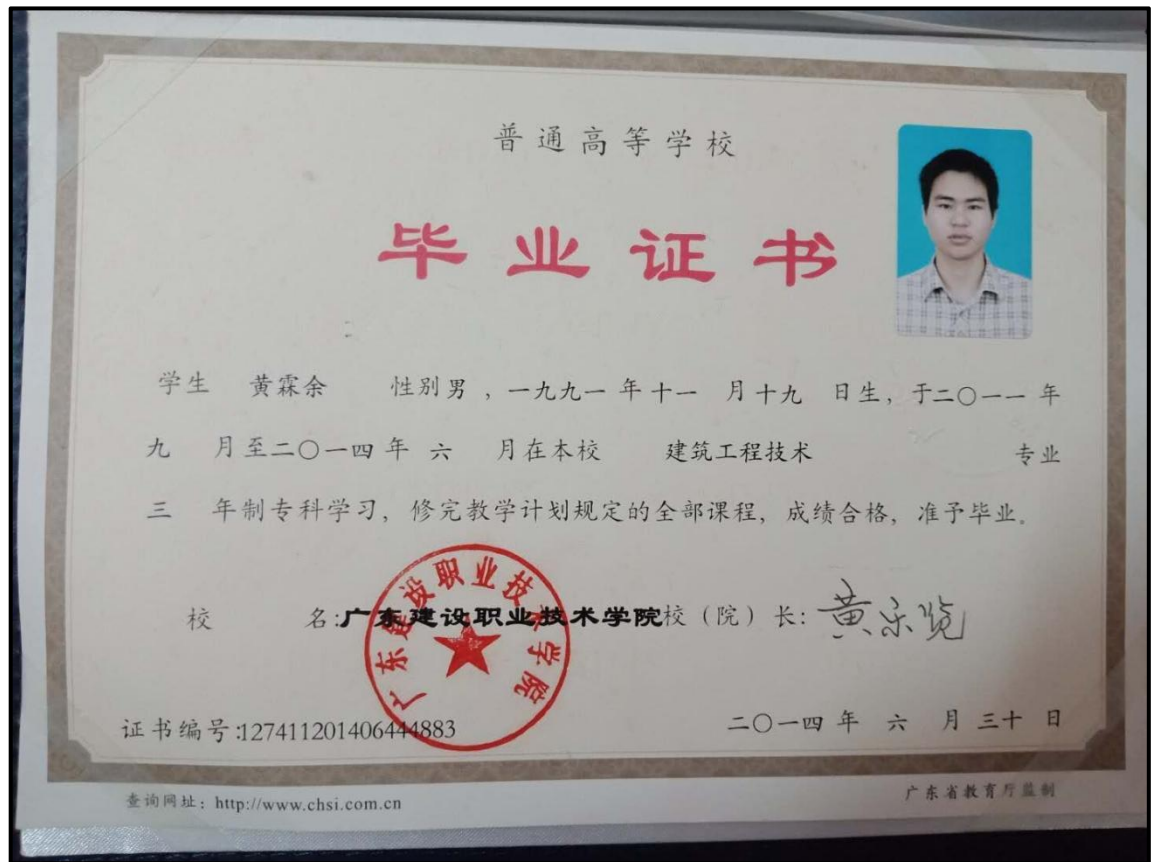 普通高等学校
毕业证书
学生 黄霖余 性别男 ,一九九一 年十一 月十九 日生, 于二〇一一 年
九 月至二〇一四年 六 月在本校 建筑工程技术 专业
三 年制专科学习, 修完教学计划规定的全部课程, 成绩合格, 准予毕业。
广东建设职业技术学院
校 名:广东建设职业技术学院校(院)长:黄乐览
证书编号:127411201406444883 二〇一四 年 六 月 三十 日
查询网址: http://www.chsi.com.cn 广东省教育厅监制